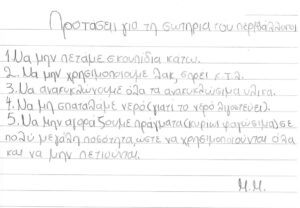 Προτασεις για τη σωτηρια του περιβαλλοντος
1. Να μην πεταμε σκουπιδια κατω.
2. Να μην χρησιμοποιουμε λακ, σπρει κ.τ.λ.
3. Να ανακυκλωνουμε όλα τα ανακυκλώσιμα υλικα.
4. Να μη σπαταλαμε νερό (γιατι το νερό λιγοστεύει).
5. Να μην αγοράζουμε πράγματα (κυριως φαγώσιμα) σε
πολύ μεγάλη ποσότητα, ώστε να χρησιμοποιουνται όλα
και να μην πετιούνται.
Μ.Μ.